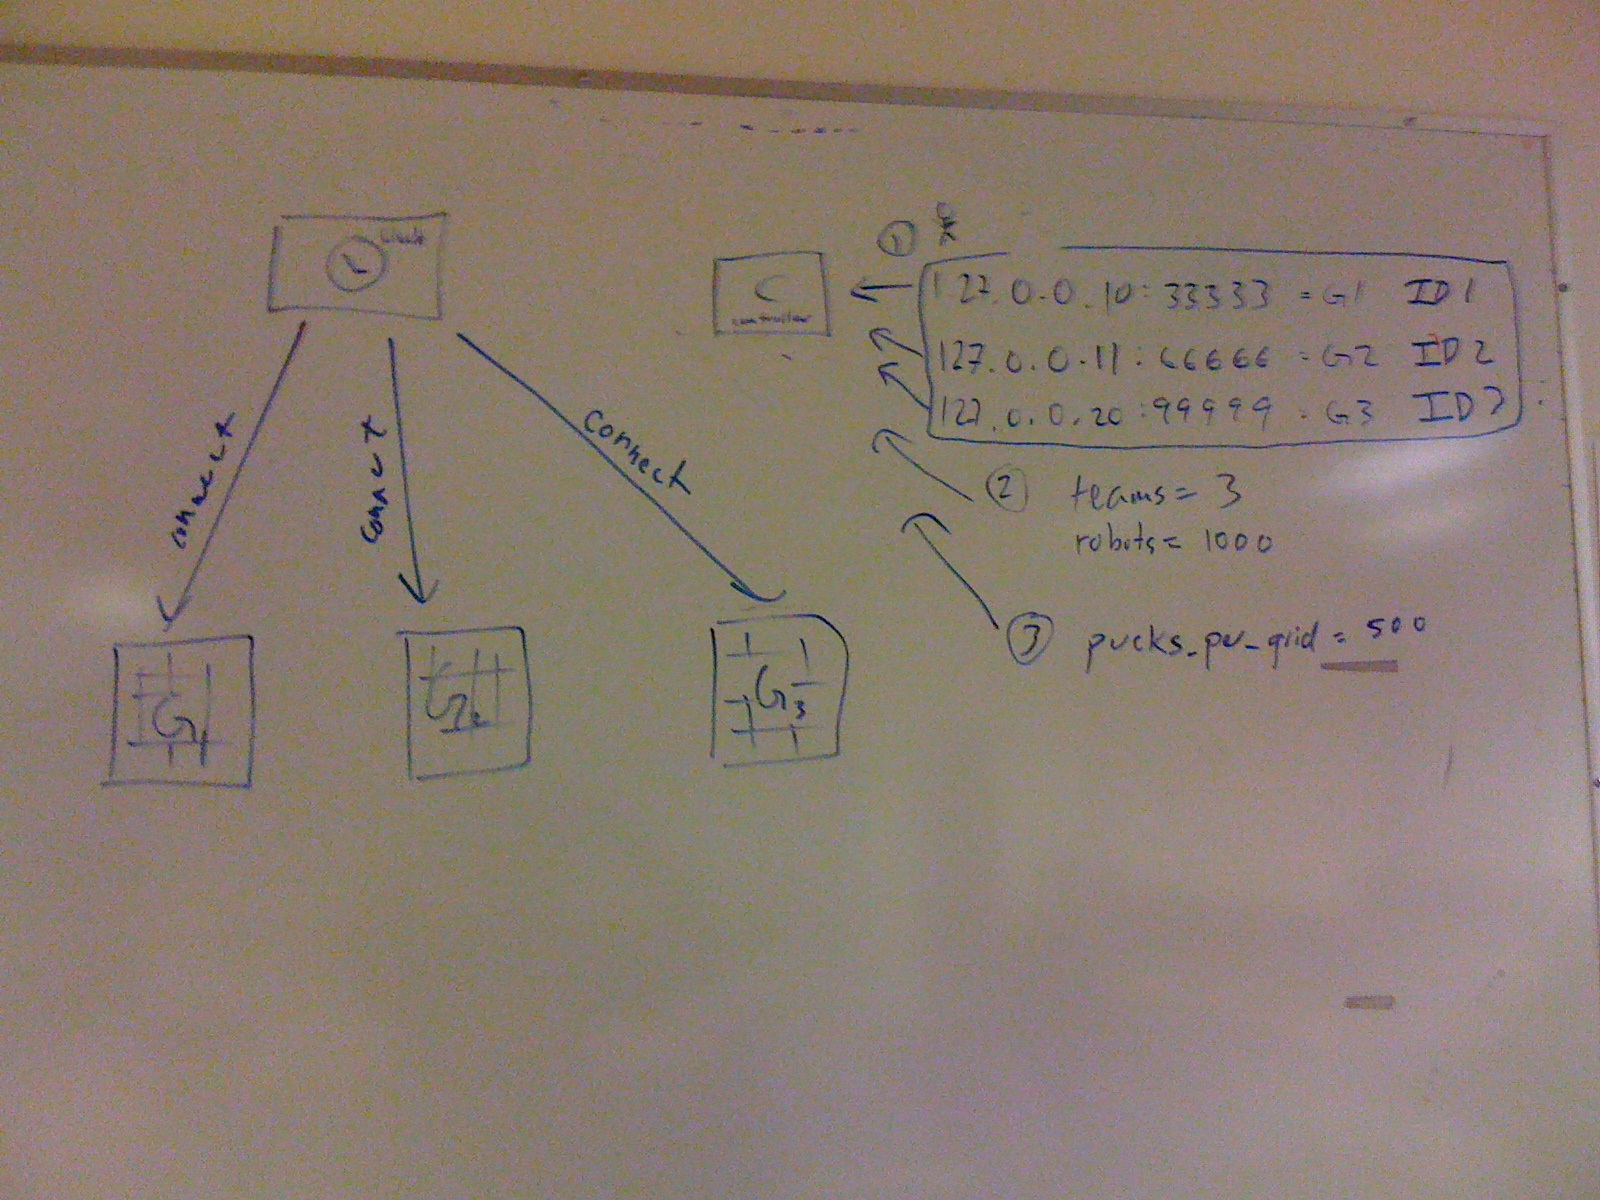 connect
connect
connect
G1
G2
G3
C
controller
1
127.0.0.10:33333 = G1 ID1
127.0.0.11:66666 = G2 ID2
127.0.0.20:99999 = G3 ID3
2 teams = 3
robots = 1000
3 pucks_per_grid = 500